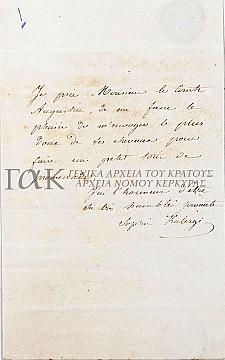 Je prie Monsieur le Comte
Augustin, de me faire le
plaisir de m'envoyer le plus
doux de ses chevaux pour
faire un petit tour de
ΓΑΚ ΓΕΝΙΚΑ ΑΡΧΕΙΑ ΤΟΥ ΚΡΑΤΟΥΣ
ΑΡΧΕΙΑ ΝΟΜΟΥ ΚΕΡΚΥΡΑΣ
J'ai l'honneur d'être
sa très humble servante
Sophie